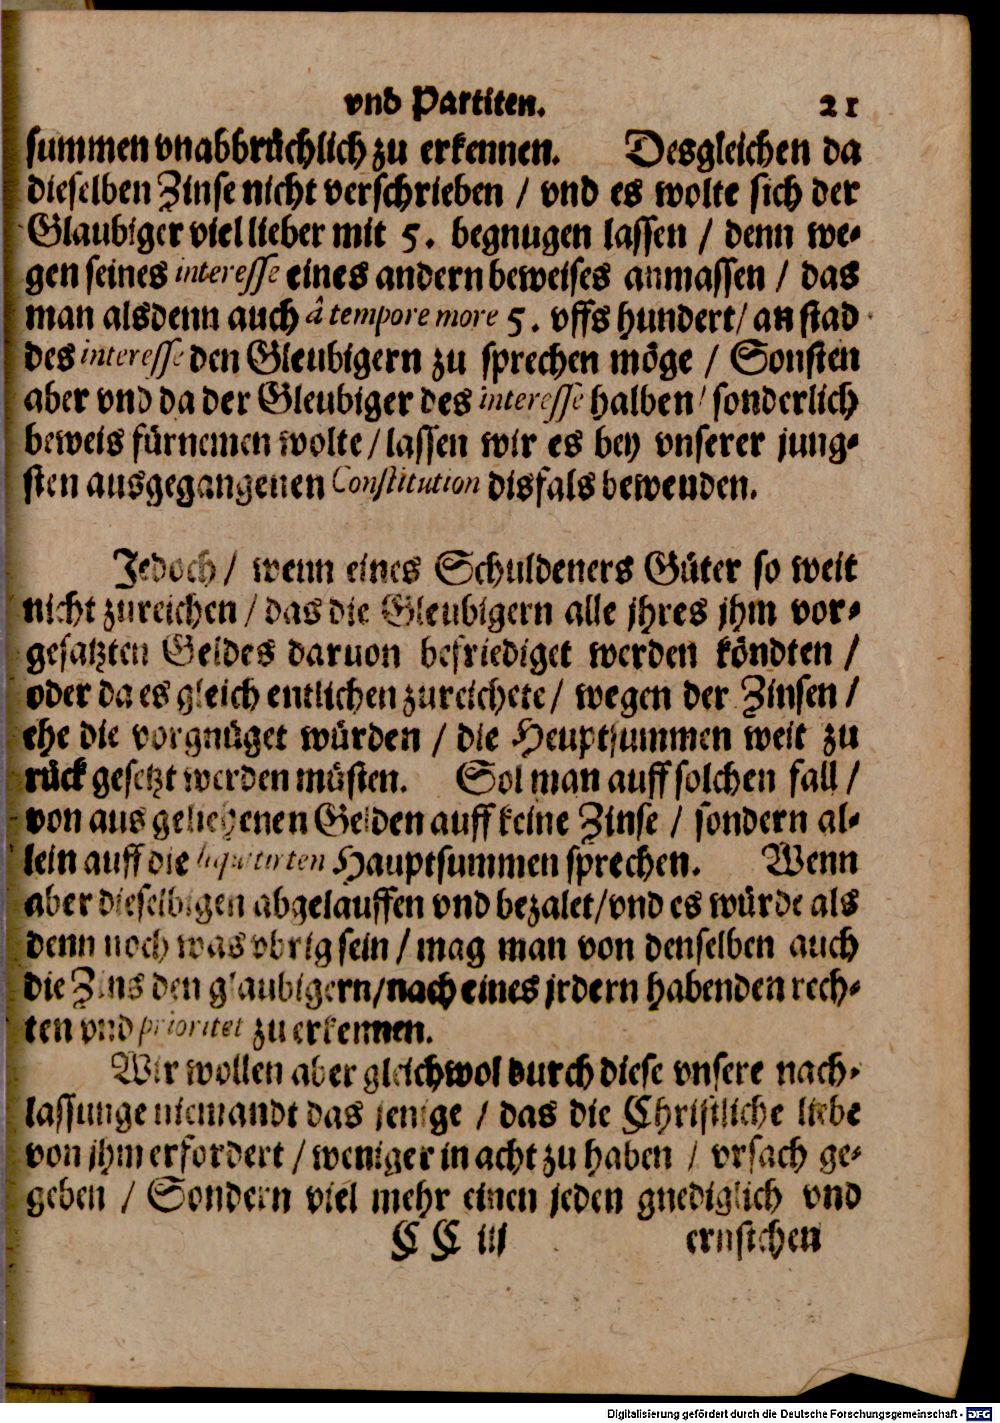 vnd Partiten. 21
summen vnabbrüchlich zu erkennen. Desgleichen da
dieselben Zinse nicht verschrieben / vnd es wolte sich der
Glaubiger viel lieber mit 5. begnugen lassen / denn we-
gen seines interesse eines andern beweises anmassen / das
man alsdenn auch â tempore more 5. vffs hundert / an stad
des interesse den Gleubigern zu sprechen möge / Sonsten
aber vnd da der Gleubiger des interesse halben / sonderlich
beweis fürnemen wolte / lassen wir es bey vnserer jung-
sten ausgegangenen Constitution disfals bewenden.
Jedoch / wenn eines Schuldeners Güter so weit
nicht zureichen / das die Gleubigern alle jhres jhm vor-
gesatzten Geldes daruon befriediget werden köndten /
oder da es gleich entlichen zureichete / wegen der Zinsen /
ehe die vorgnüget würden / die Heuptsummen weit zu
rück gesetzt werden müsten. Sol man auff solchen fall /
von aus geliehenen Gelden auff keine Zinse / sondern al-
lein auff die liquidirten Hauptsummen sprechen. Wenn
aber dieselbigen abgelauffen vnd bezalet / vnd es würde als
denn noch was vbrig sein / mag man von denselben auch
die Zins den glaubigern / nach eines jrdern habenden rech-
ten vnd prioritet zu erkennen.
Wir wollen aber gleichwol durch diese vnsere nach-
lassunge niemandt das jenige / das die Christliche liebe
von jhm erfordert / weniger in acht zu haben / vrsach ge-
geben / Sondern viel mehr einen jeden gnediglich vnd
CC iij ernstchen
Digitalisierung gefördert durch die Deutsche Forschungsgemeinschaft - DFG